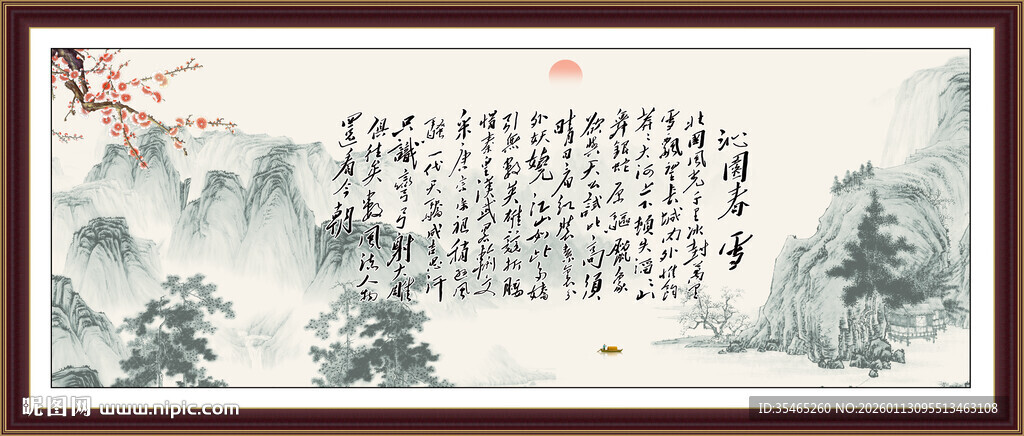 沁園春 雪
北國風光千里冰封萬里
雪飄望長城内外惟餘
莽莽大河上下頓失滔滔山
舞銀蛇原驅臘象
欲與天公試比高須
晴日看紅裝素裹分
外妖嬈 江山如此多嬌
引無數英雄競折腰
惜秦皇漢武略輸文
采唐宗宋祖稍遜風
騷一代天驕成吉思汗
只識彎弓射大雕
俱往矣數風流人物
還看今朝
昵图网 www.nipic.com
ID:35465260 NO:20260113095513463108